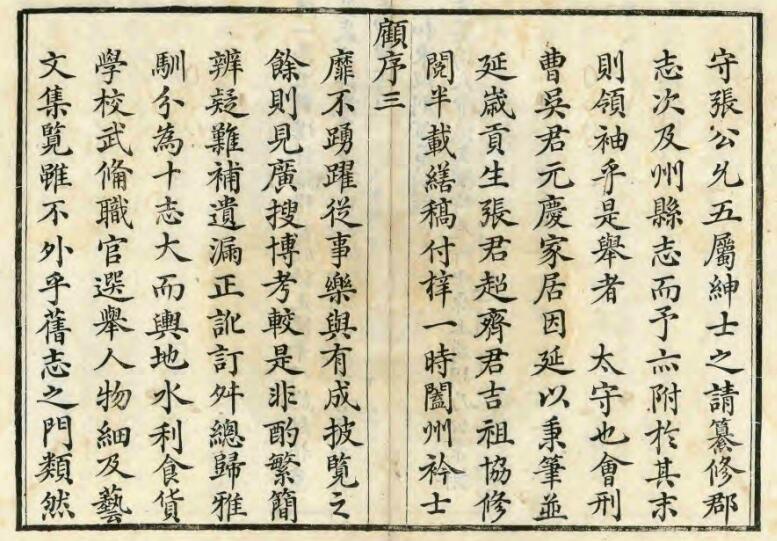 守張公允五屬紳士之請纂修郡
志次及州縣志而予亦附於其末
則領袖乎是舉者　太守也會刑
曹吳君元慶家居因延以秉筆並
延歲貢生張君超齊君吉祖協修
閱半載繕稿付梓一時闔州衿士
顧序三
靡不踴躍從事樂與有成披覽之
餘則見廣搜博考較是非酌繁簡
辨疑難補遺漏正訛訂舛總歸雅
馴分為十志大而輿地水利食貨
學校武備職官選舉人物細及藝
文集覽雖不外乎舊志之門類然